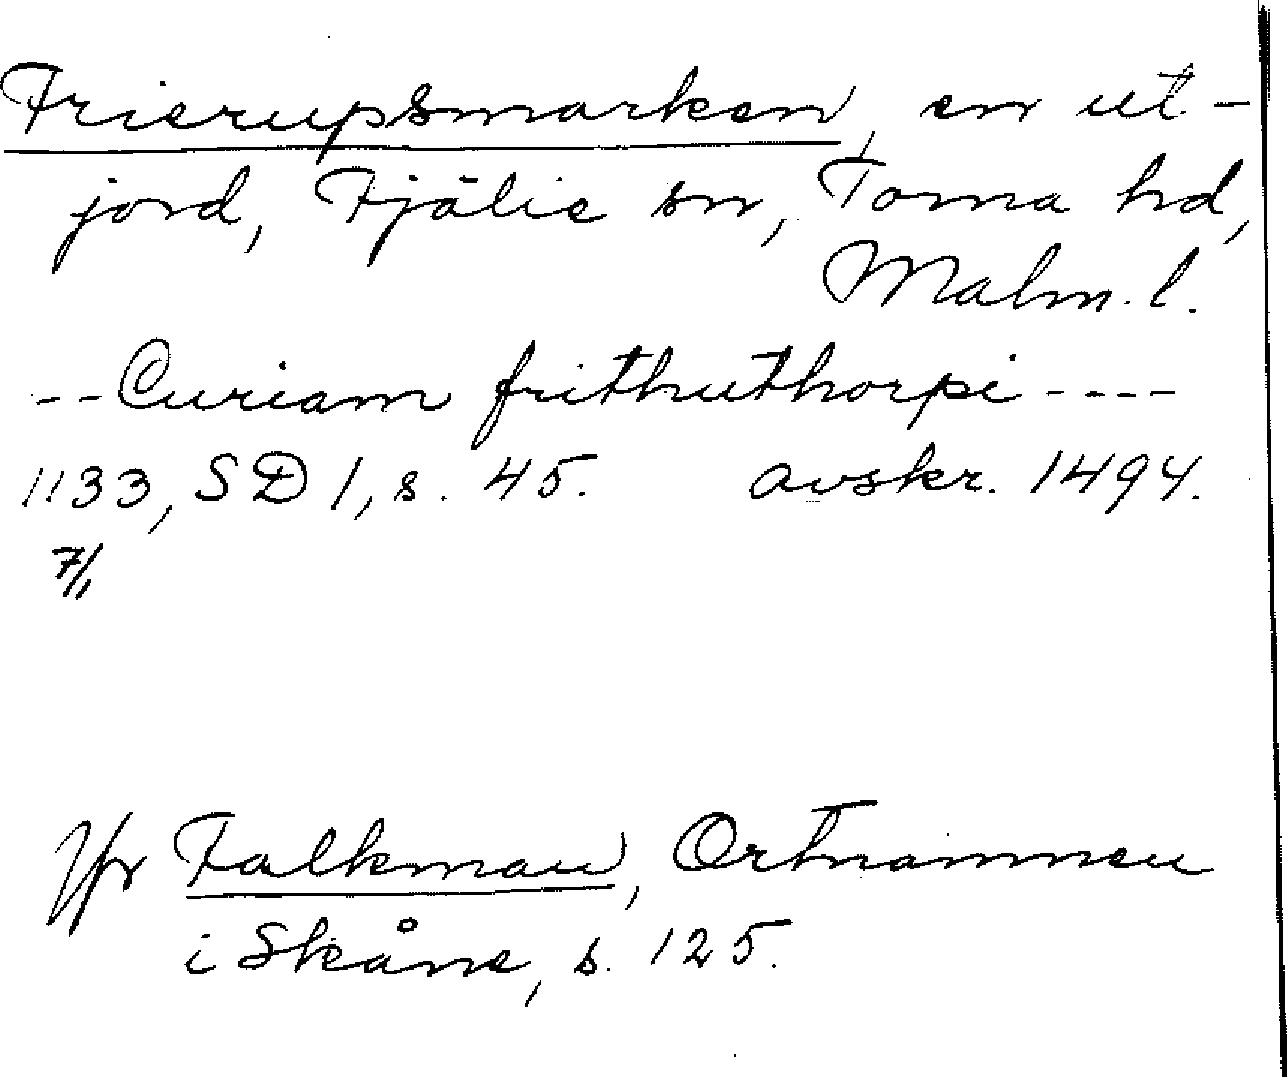 Frierupsmarken, en ut-
jord, Fjälie sn, Torna hd,
Malm. l.
--Curiam frithuthorpi----
1133, SD 1, s. 45. avskr. 1494.
7/1
Jfr Falkman, Ortnamnen
i Skåne, s. 125.